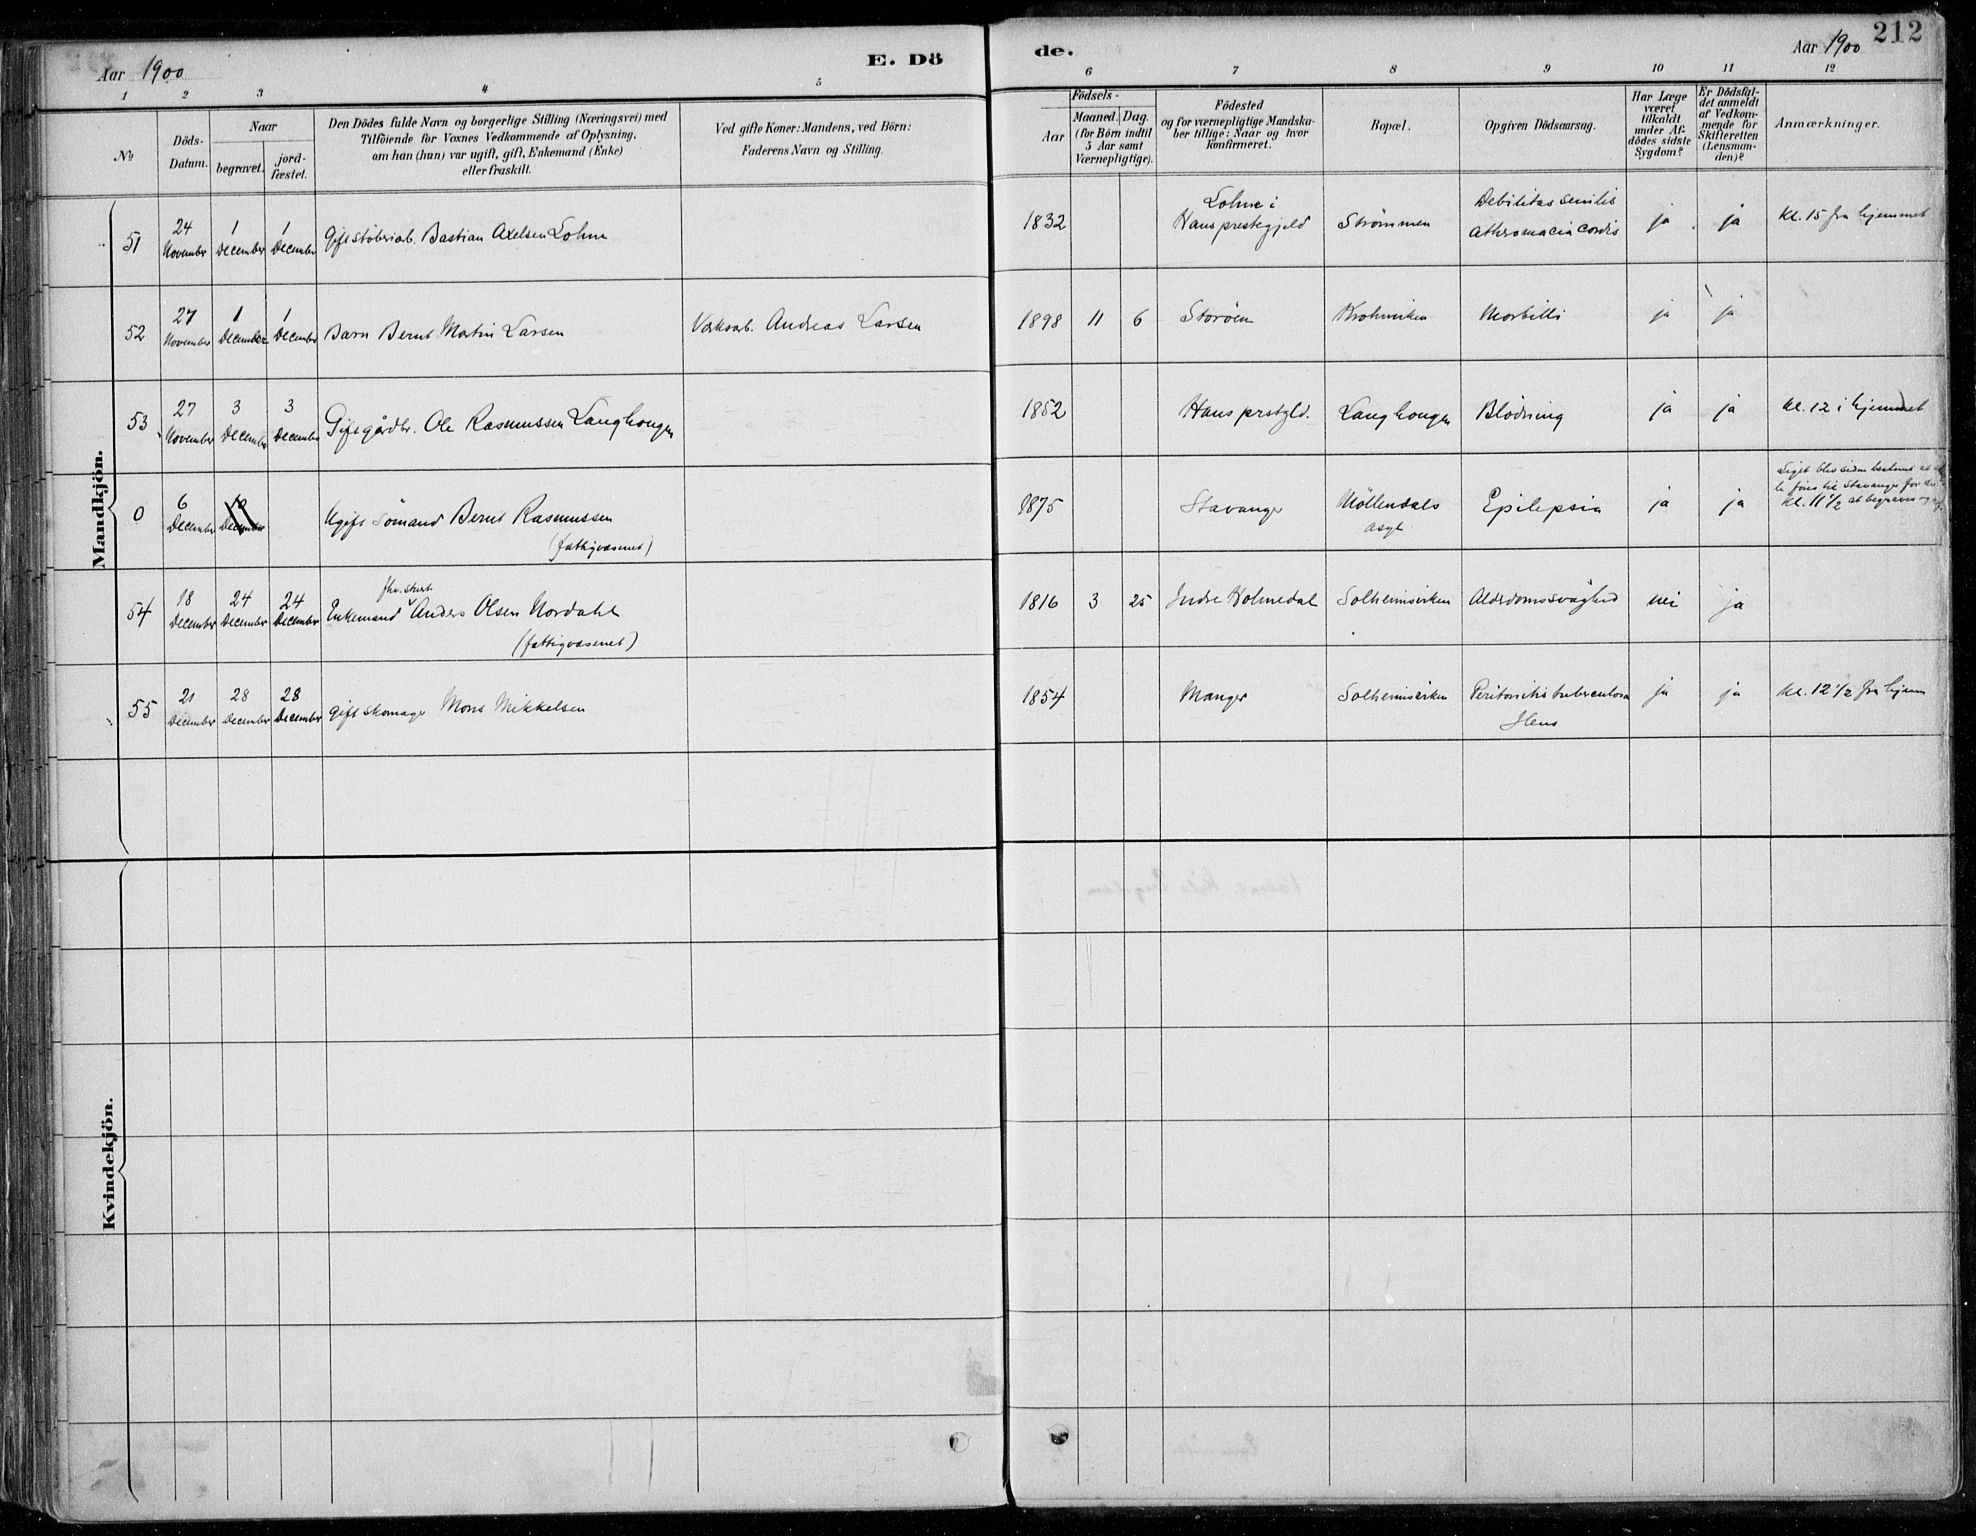 Aar 1900
E. Dö
de.
Aar 1900
212
1 2 3 4 5
6 7 8 9 10 11 12
No
Döds-
Datum.
Naar
begravet.
jord-
fæstet.
Den Dödes fulde Navn og borgerlige Stilling (Næringsvei) med
Tilföiende for Voxnes Vedkommende af Oplysning,
om han (hun) var ugift, gift, Enkemand (Enke)
eller fraskilt.
Ved gifte Koner: Mandens, ved Börn:
Faderens Navn og Stilling.
Födsels-
Aar
Maaned. Dag.
(for Börn indtil
5 Aar samt
Værnepligtige).
Födested
og for værnepligtige Mandska-
ber tillige: Naar og hvor
Konfirmeret.
Bopæl.
Opgiven Dödsaarsag.
Har Læge
været
tilkaldt
under Af-
dödes sidste
Sygdom?
Er Dödsfal-
det anmeldt
af Vedkom-
mende for
Skifteretten
(Lensman-
den)?
Anmærkninger.
Mandkjön.
51
24
November
1
December
1
December
Gift Støberiarb. Bastian Axelsen Lohne
1832
Lohne i
Haus prestegjeld
Strömmen
Debilitas senilis
cordis
ja
ja
Kl. 15 fra hjemmet
52
27
November
1
December
1
December
Barn Bernt Martin Larsen
Værksarb. Andreas Larsen
1898 11 6
Storöen
Morbilli
ja
ja
53
27
November
3
December
3
December
Gift gårdbr. Ole Rasmussen Langhougen
1852
Haus prstgld.
Langhougen
Blödning
ja
ja
Kl. 12 i hjemmet
0
6
December
December
Ugift Sömand Bernt Rasmussen
(fattigvæsenet)
1875
Stavanger
Möllendals
asyl
Epilepsia
ja
ja
Liget blev siden bestemt at
til Stavanger for der
Kl. 11 1/2 at begraves
54
18
December
24
December
24
December
Enkemand fhv. Anders Olsen Nordahl
(fattigvæsenet)
1816 3 25
Indre Holmedal
Solheimsviken
Alderdomssvaghed
nei
ja
55
21
December
28
December
28
December
gift skomager Mons Mikkelsen
1854
Manger
Solheimsviken
Peritonitis tuberculosa
Ileus
ja
ja
Kl. 12 1/2 fra hjem
Kvindekjön.